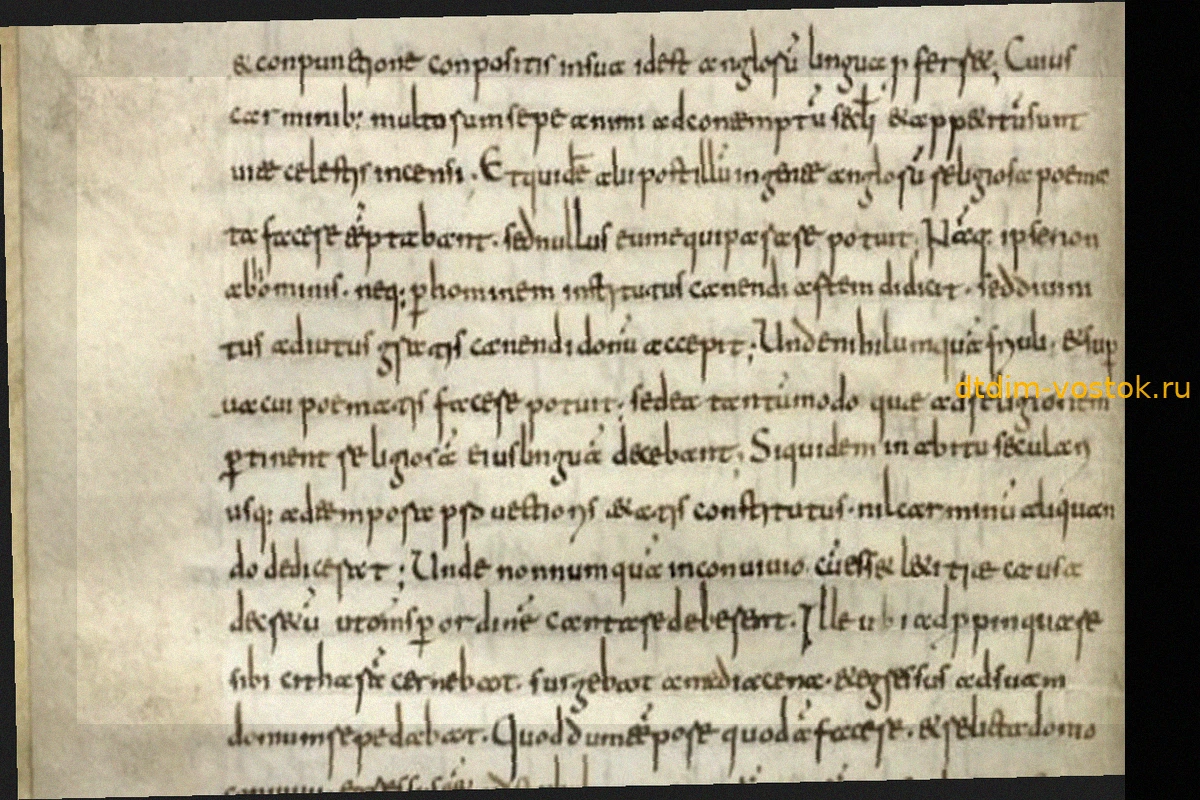 & conpunctione conpositis insua idest anglorū lingua pferret; Cuius
carminib: multorum sepe animi adcontemptū sēcli & appetitū sunt
uitae celestis incensi. Et quidē alii post illū ingente anglorū religiosa poema
ta facere tēptabant. sed nullus eum equiparare potuit; Nāq: ipse non
ab hominis. neq: p hominem institutus canendi artem didicit. sed diuini
tus adiutus gratis canendi donū accepit; Unde nihil umquā friuoli. & sup
uacui poematis facere potuit; sed ea tantūmodo quae ad religionem
ptinent religiosā eius linguā decebant; Siquidem in abitu seculari
usq: ad tempora pro uectioris aetatis constitutus. nil carminū aliquan
do dedicerat; Unde non numquā in conuiuio. cū esset laetitiae causa
decretū ut omīs p ordinē cantare deberent. Ille ubi adppinquare
sibi citharā cernebat. surgebat a media cena. & egressus ad suam
domum sepe dabat. Quod dum tēpore quodā faceret. & relicta domo